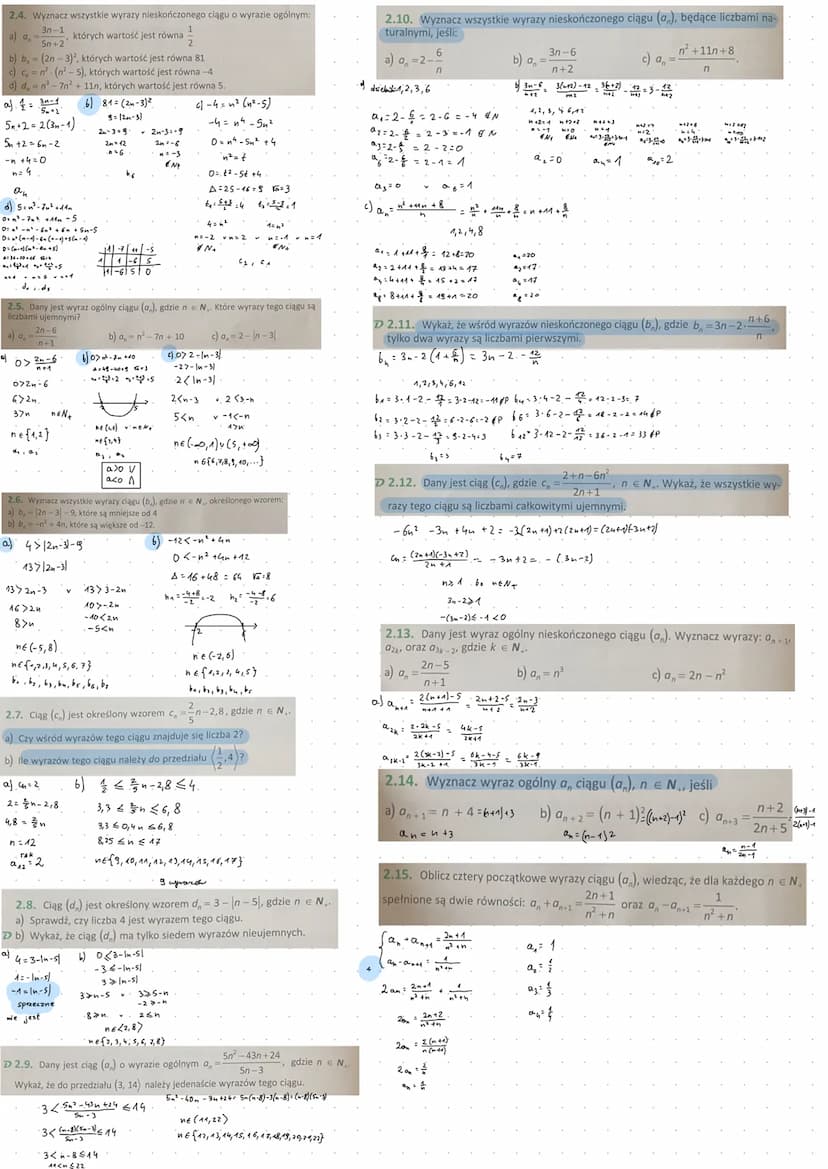 2.4. Wyznacz wszystkie wyrazy nieskończonego ciągu o wyrazie ogólnym:
a) aₙ = (3n−1)/(5n+2), których wartość jest równa 1/2
b) bₙ = (2n − 3)², których wartość jest równa 81
c) cₙ = n² · (n² − 5), których wartość jest równa −4
d) dₙ = n³ − 7n² + 11n, których wartość jest równa 5.
a) 1/2 = (3n−1)/(5n+2)
5n+2 = 2(3n−1)
5n+2 = 6n−2
−n+4=0
n=4
b) 81=(2n−3)²
9=|2n−3|
2n−3=9 v 2n−3=−9
2n=12 2n=−6
n=6 n=−3
c) −4=n²(n²−5)
−4=n⁴−5n²
0=n⁴−5n²+4
n²=t
0=t²−5t+4
Δ=25−16=9 √Δ=3
4=n² 1=n²
n=−2 v n=2 v n=−1 v n=1
d) 5=n³−7n²+11n
0=n³−7n²+11n−5
2.5. Dany jest wyraz ogólny ciągu (aₙ), gdzie n ∈ N₊. Które wyrazy tego ciągu są
liczbami ujemnymi?
a) aₙ = (2n−6)/(n+1) b) aₙ = n² − 7n + 10 c) aₙ = 2 − |n − 3|
a) 0 > (2n−6)/(n+1)
0>2n−6
6>2n
3>n n∈N₊
n∈{1,2}
b) 0>n²−7n+10
n∈{3,4}
a>0 V
a<0 Λ
c) 0>2−|n−3|
−2>−|n−3|
2<|n−3|
2<n−3 v 2<3−n
5<n v −1<−n
1>n
n∈(−∞,1)∪(5,+∞)
n∈{6,7,8,9,10,...}
2.6. Wyznacz wszystkie wyrazy ciągu (bₙ), gdzie n ∈ N₊, określonego wzorem:
a) bₙ = |2n − 3| − 9, które są mniejsze od 4
b) bₙ = −n² + 4n, które są większe od −12.
a) 4>|2n−3|−9
13>|2n−3|
13>2n−3 v 13>3−2n
16>2n 10>−2n
8>n −10<2n
−5<n
n∈(−5,8)
n∈{1,2,3,4,5,6,7}
b₁, b₂, b₃, b₄, b₅, b₆, b₇
b) −12<−n²+4n
0<−n²+4n+12
Δ=16+48=64 √Δ=8
n₁=(−4+8)/−2=−2 n₂=(−4−8)/−2=6
−2 6
n∈(−2,6)
n∈{1,2,3,4,5}
b₁, b₂, b₃, b₄, b₅
2.7. Ciąg (cₙ) jest określony wzorem cₙ = 2/5 n − 2,8, gdzie n ∈ N₊.
a) Czy wśród wyrazów tego ciągu znajduje się liczba 2?
b) Ile wyrazów tego ciągu należy do przedziału ⟨1/2, 4⟩?
a) cₙ=2
2=2/5n−2,8
4,8=2/5n
n=12
tak
a₁₂=2
b) 1/2 ≤ 2/5n−2,8 ≤ 4
3,3 ≤ 2/5n ≤ 6,8
3,3 ≤ 0,4n ≤ 6,8
8,25 ≤ n ≤ 17
n∈{9,10,11,12,13,14,15,16,17}
9 wyrazów
2.8. Ciąg (dₙ) jest określony wzorem dₙ = 3 − |n − 5|, gdzie n ∈ N₊.
a) Sprawdź, czy liczba 4 jest wyrazem tego ciągu.
D b) Wykaż, że ciąg (dₙ) ma tylko siedem wyrazów nieujemnych.
a) 4=3−|n−5|
1=−|n−5|
−1=|n−5|
sprzeczne
nie jest
b) 0≤3−|n−5|
−3≤−|n−5|
3≥|n−5|
3≥n−5 v 3≥5−n
−2≥−n
8≥n 2≤n
n∈⟨2,8⟩
n∈{2,3,4,5,6,7,8}
D 2.9. Dany jest ciąg (aₙ) o wyrazie ogólnym aₙ = (5n² − 43n + 24)/(5n − 3), gdzie n ∈ N₊.
Wykaż, że do przedziału (3, 14⟩ należy jedenaście wyrazów tego ciągu.
3 < (5n²−43n+24)/(5n−3) ≤ 14
5n²−40n−3n+24=5n(n−8)−3(n−8)=(n−8)(5n−3)
3 < (n−8)(5n−3)/(5n−3) ≤ 14
3<n−8≤14
11<n≤22
n∈(11,22⟩
n∈{12,13,14,15,16,17,18,19,20,21,22}
2.10. Wyznacz wszystkie wyrazy nieskończonego ciągu (aₙ), będące liczbami na-
turalnymi, jeśli:
a) aₙ = 2 − 6/n b) aₙ = (3n−6)/(n+2) c) aₙ = (n²+11n+8)/n
1,2,3,6
a₁=2−6/1=2−6=−4 ∉N
a₂=2−6/2=2−3=−1 ∉N
a₃=2−6/3=2−2=0
a₆=2−6/6=2−1=1
a₃=0 v a₆=1
b) (3n−6)/(n+2) = (3(n+2)−12)/(n+2) = 3(n+2)/(n+2) − 12/(n+2) = 3−12/(n+2)
1,2,3,4,6,12
a₂=0 a₄=1 a₁₀=2
c) aₙ=(n²+11n+8)/n = n²/n + 11n/n + 8/n = n+11+8/n
1,2,4,8
a₁=1+11+8/1=12+8=20
a₂=2+11+8/2=13+4=17
a₄=4+11+8/4=15+2=17
a₈=8+11+8/8=19+1=20
a₁=20
a₂=17
a₄=17
a₈=20
D 2.11. Wykaż, że wśród wyrazów nieskończonego ciągu (bₙ), gdzie bₙ = 3n − 2 · (n+6)/n,
tylko dwa wyrazy są liczbami pierwszymi.
bₙ=3n−2(1+6/n)=3n−2−12/n
1,2,3,4,6,12
b₁=3·1−2−12/1=3−2−12=−11∉P b₄=3·4−2−12/4=12−2−3=7
b₂=3·2−2−12/2=6−2−6=−2∉P b₆=3·6−2−12/6=18−2−2=14∉P
b₃=3·3−2−12/3=9−2−4=3 b₁₂=3·12−2−12/12=36−2−1=33∉P
b₃=3 b₄=7
D 2.12. Dany jest ciąg (cₙ), gdzie cₙ = (2+n−6n²)/(2n+1), n ∈ N₊. Wykaż, że wszystkie wy-
razy tego ciągu są liczbami całkowitymi ujemnymi.
−6n²−3n+4n+2=−3n(2n+1)+2(2n+1)=(2n+1)(−3n+2)
cₙ=(2n+1)(−3n+2)/(2n+1)=−3n+2=−(3n−2)
n≥1 bo n∈N₊
3n−2≥1
−(3n−2)≤−1<0
2.13. Dany jest wyraz ogólny nieskończonego ciągu (aₙ). Wyznacz wyrazy: aₙ₊₁,
a₂ₖ, oraz a₃ₖ₋₂, gdzie k ∈ N₊.
a) aₙ = (2n−5)/(n+1) b) aₙ = n³ c) aₙ = 2n − n²
a) aₙ₊₁=(2(n+1)−5)/(n+1+1)=(2n+2−5)/(n+2)=(2n−3)/(n+2)
a₂ₖ=(2·2k−5)/(2k+1)=(4k−5)/(2k+1)
a₃ₖ₋₂=(2(3k−2)−5)/(3k−2+1)=(6k−4−5)/(3k−1)=(6k−9)/(3k−1)
2.14. Wyznacz wyraz ogólny aₙ ciągu (aₙ), n ∈ N₊, jeśli
a) aₙ₊₁ = n + 4 =(n+1)+3 b) aₙ₊₂ = (n + 1)² =((n+2)−1)² c) aₙ₊₃ = (n+2)/(2n+5)
aₙ=n+3 aₙ=(n−1)²
aₙ=(n−1)/(2n−1)
2.15. Oblicz cztery początkowe wyrazy ciągu (aₙ), wiedząc, że dla każdego n ∈ N₊
spełnione są dwie równości: aₙ + aₙ₊₁ = (2n+1)/(n²+n) oraz aₙ − aₙ₊₁ = 1/(n²+n).
aₙ+aₙ₊₁=(2n+1)/(n²+n)
aₙ−aₙ₊₁=1/(n²+n)
+
2aₙ=(2n+1)/(n²+n)+1/(n²+n)
2aₙ=(2n+2)/(n²+n)
2aₙ=2(n+1)/n(n+1)
2aₙ=2/n
aₙ=1/n
a₁=1
a₂=1/2
a₃=1/3
a₄=1/4